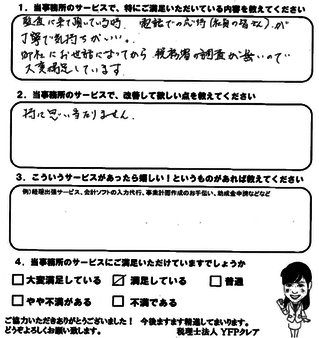 1．当事務所のサービスで、特にご満足いただいている内容を教えてください
監査に来て頂いている時、電話での応待(社員の皆さん)が
丁寧で気持ちがいい。
御社にお世話になってから税務署の調査が無いので
大変満足しています。
2．当事務所のサービスで、改善して欲しい点を教えてください
特に思い当たりません。
3．こういうサービスがあったら嬉しい！というものがあれば教えてください
例）経理出張サービス、会計ソフトの入力代行、事業計画作成のお手伝い、助成金申請などなど
4．当事務所のサービスにご満足いただけていますでしょうか
□大変満足している ☑満足している □普通
□やや不満がある □不満である
ご協力いただきありがとうございました！ 今後ますます精進してまいります。
どうぞよろしくお願い致します。 税理士法人 YFPクレア